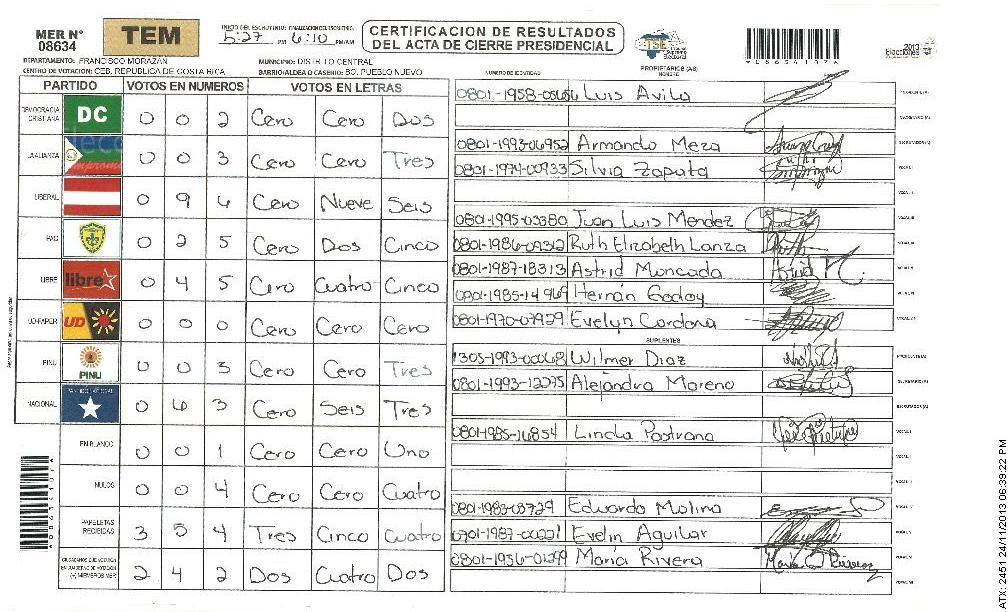 MER N° 08634
TEM
INICIO DEL ESCRUTINIO: 5:27 PM FINALIZACION DEL ESCRUTINIO: 6:10 PM/AM
CERTIFICACION DE RESULTADOS
DEL ACTA DE CIERRE PRESIDENCIAL
TSE
Tribunal Supremo Electoral
2013
Elecciones
DEPARTAMENTO: FRANCISCO MORAZAN MUNICIPIO: DISTRITO CENTRAL
CENTRO DE VOTACION: CEB. REPUBLICA DE COSTA RICA BARRIO/ALDEA O CASERIO: BO. PUEBLO NUEVO
NUMERO DE IDENTIDAD PROPIETARIOS (AS) NOMBRE
PARTIDO VOTOS EN NUMEROS VOTOS EN LETRAS
DEMOCRACIA CRISTIANA DC 0 0 2 Cero Cero Dos
LA ALIANZA 0 0 3 Cero Cero Tres
LIBERAL 0 9 6 Cero Nueve Seis
PAC 0 2 5 Cero Dos Cinco
LIBRE libre 0 4 5 Cero Cuatro Cinco
UD-FAPER UD 0 0 0 Cero Cero Cero
PINU PINU 0 0 3 Cero Cero Tres
NACIONAL 0 6 3 Cero Seis Tres
EN BLANCO 0 0 1 Cero Cero Uno
NULOS 0 0 4 Cero Cero Cuatro
PAPELETAS RECIBIDAS 3 5 4 Tres Cinco Cuatro
CIUDADANOS QUE VOTARON EN CUADERNO DE VOTACION (+) MIEMBROS MER 2 4 2 Dos Cuatro Dos
Luis Avila
SECRETARIO (A)
0801-1993-06952 Armando Meza ESCRUTADOR (A)
0801-1974-00933 Silvia Zapata VOCAL I
0801-1995-03380 Juan Luis Mendez
0801-1986-09312 Ruth Elizabeth Lanza
0801-1987-18313 Astrid Moncada
0801-1985-14969 Hernán Godoy
0801-1970-07929 Evelyn Cardona
SUPLENTES
1305-1993-00068 Wilmer Diaz PRESIDENTE (A)
0801-1993-12075 Alejandra Moreno SECRETARIO (A)
ESCRUTADOR (A)
0801-1985-16854 Linda Pastrana VOCAL I
Eduardo Molina
0701-1987-00221 Evelin Aguilar
0801-1956-01299 María Rivera
ATX: 2451 24/11/2013 06:39:22 PM